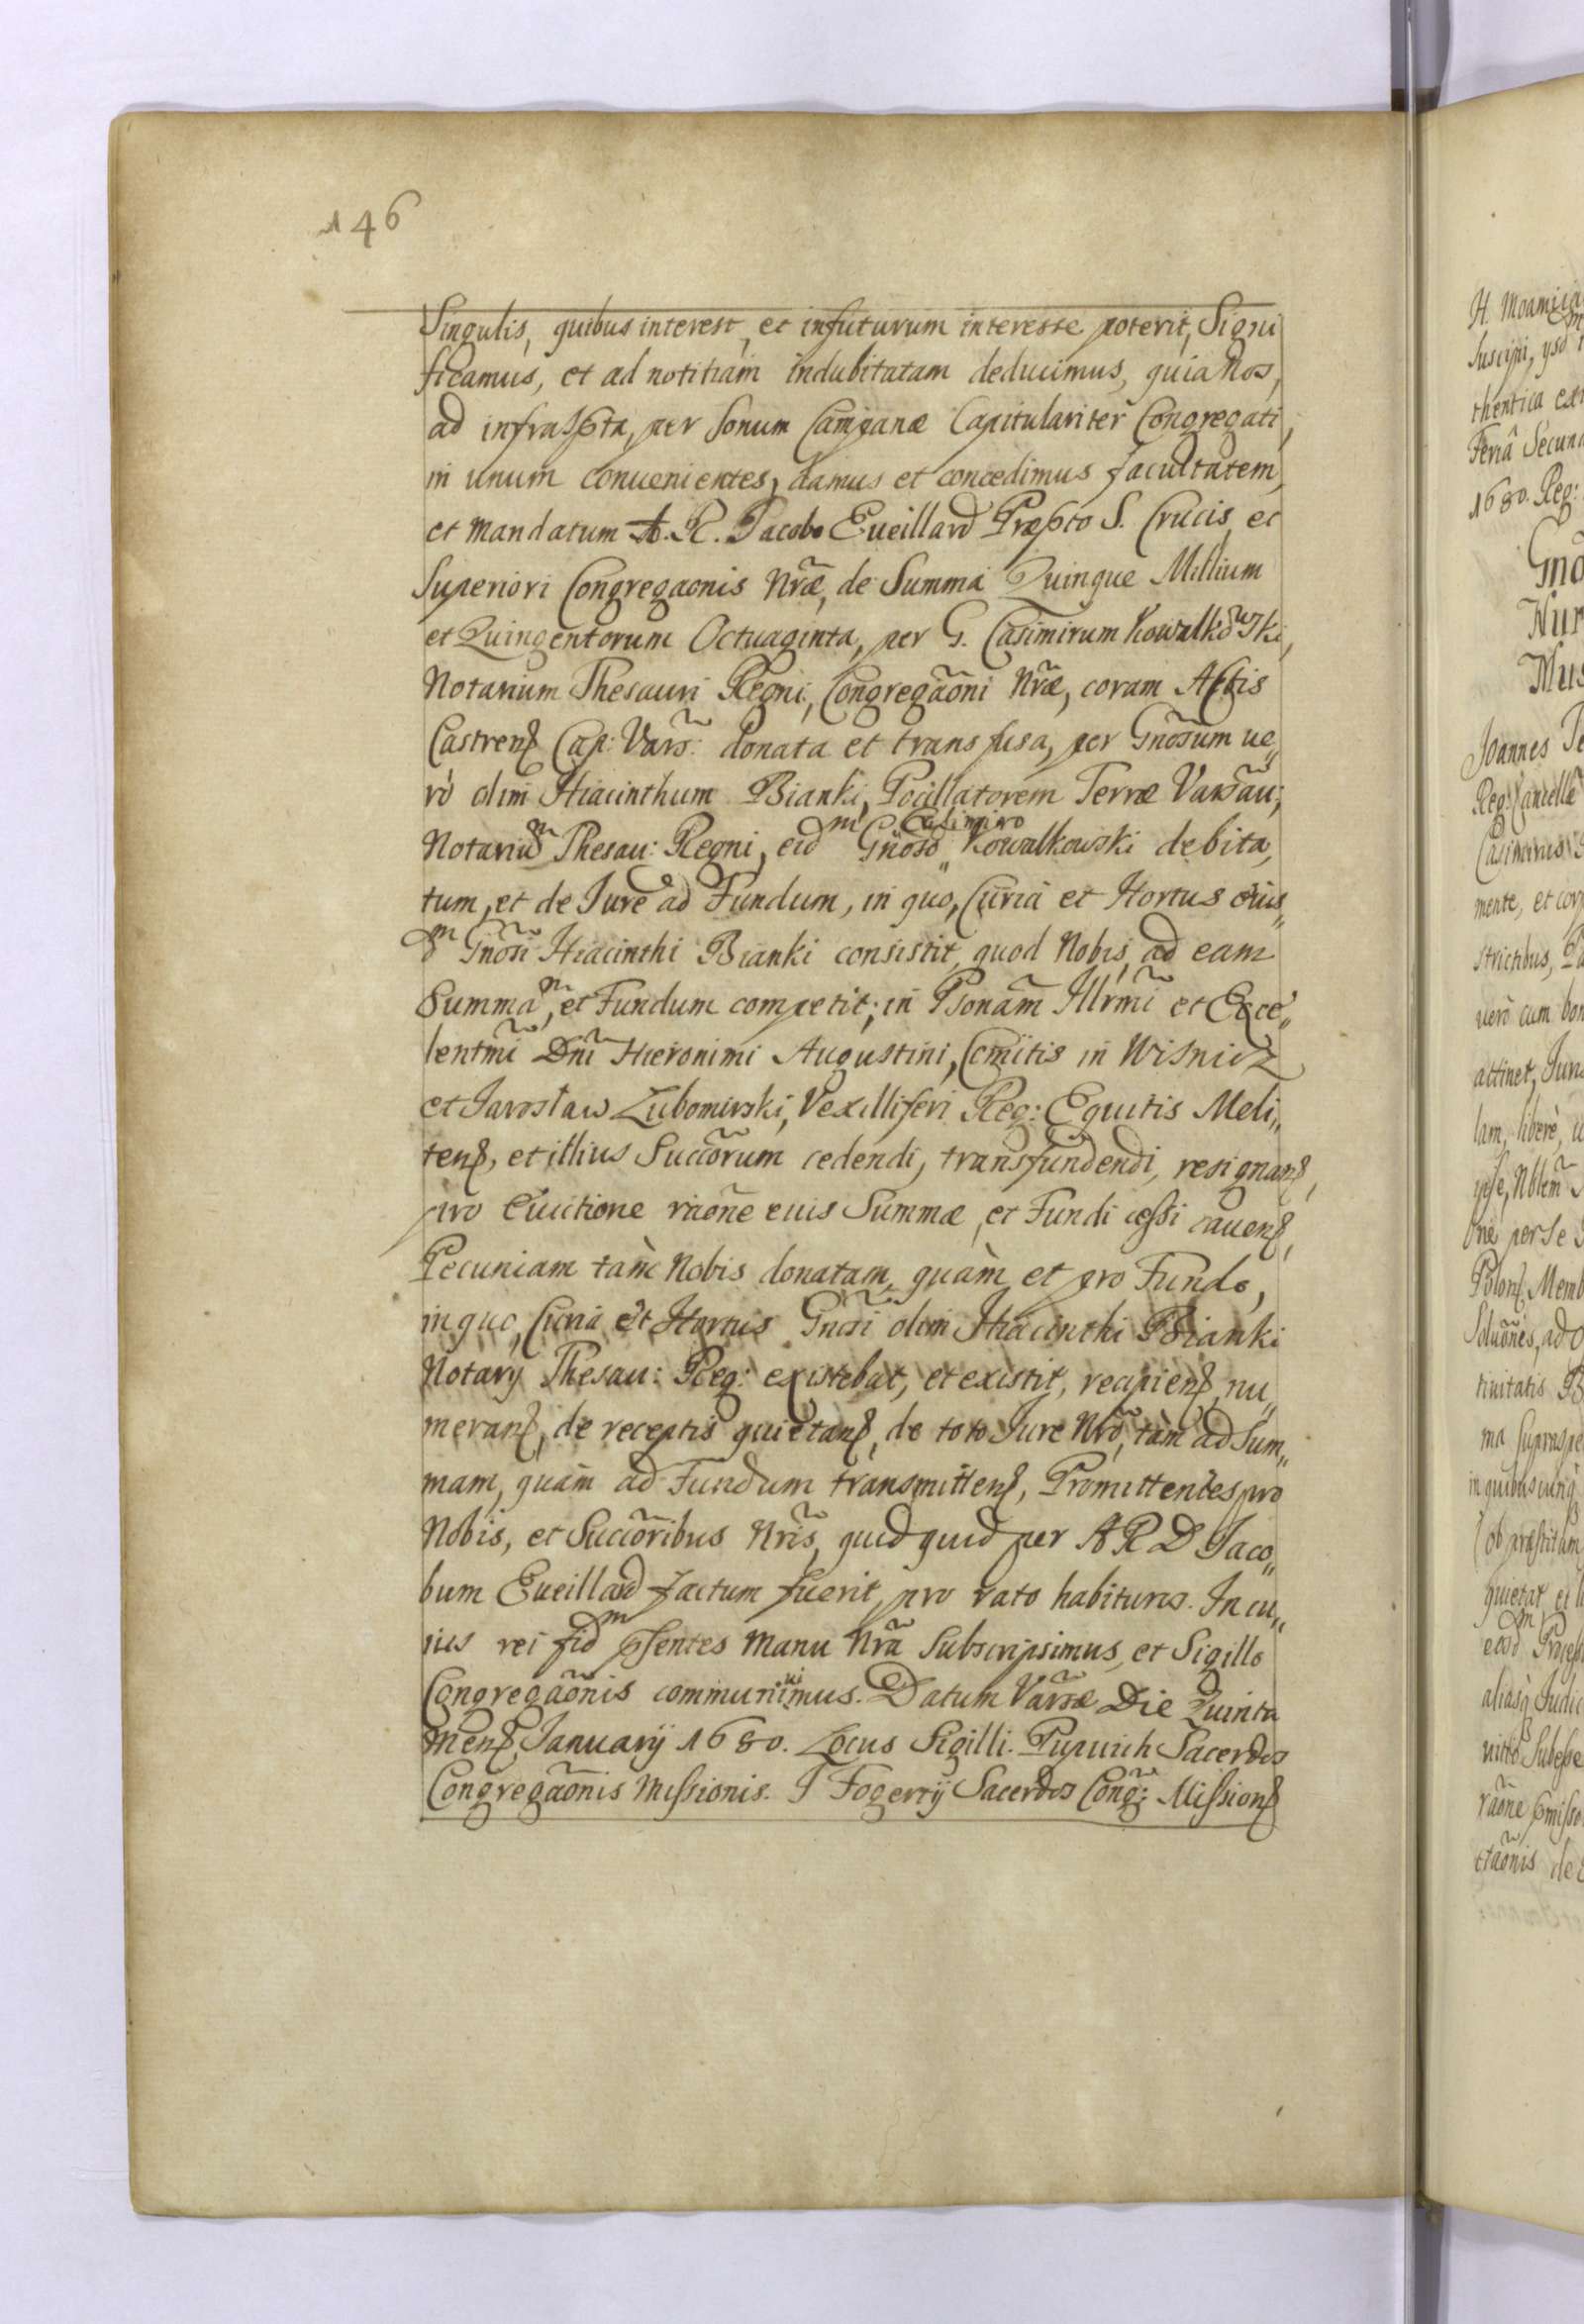 146
Singulis, quibus interest, et infuturum interesse poterit, Signi
ficamus, et ad notitiam indubitatam deducimus, quia Nos,
ad infraSpta, per sonum Campanæ Capitulariter Congregati,
in unum conuenientes, damus et concedimus facultatem,
et mandatum A. R. Jacobo Eueillard Præpto S. Crucis et
Superiori Congregaonis Nræ, de Summa Quinque Millium
et Quingentorum Octuaginta, per G. Casimirum Kowalkowski,
Notarium Thesauri Regni, Congregãoni Nræ, coram Actis
Castrens Cap: Vars: donata et transfusa, per Gnosum ue„
rò olim Hiacinthum Bianki, Pocillatorem Terræ Varsau:
Notarium Thesau: Regni, eidm Gnoso Casimiro Kowalkowski debita,
tum, et de Jure ad Fundum, in quo, Curia et Hortus eius„
dm Gnosi Hiacinthi Bianki consistit, quod Nobis, ad eam
Summam, et Fundum competit; in Psonam Illrmi et Exce„
lentmi Dni Hieronimi Augustini, Comitis in Wisnicz
et Jarosław Lubomirski, Vexilliferi Reg: Equitis Meli„
tens, et illius Succorum cedendi, transfundendi, resignans,
pro Euictione raõne euis Summæ, et Fundi cessi cauens,
Pecuniam tam Nobis donatam, quàm et pro Fundo,
in quo, Curia et Hortus Gnosi olim Hiacinthi Bianki
Notary Thesau: Reg: existebat, et existit, recipiens, nu„
merans, de receptis quietans, de toto Jure Nro, tàm ad Sum„
mam, quàm ad Fundum transmittens, Promittentes pro
Nobis, et Succoribus Nris, quidquid per A R D Jaco„
bum Eueillard factum fuerit, pro rato habituros. In cu„
ius rei fidm psentes manu Nra Subscripsimus, et Sigillo
Congregãonis communiuimus. Datum Varsæ Die Quinta
Mens Januarij 1680. Locus Sigilli. Pupuich Sacerdos
Congregãonis Missionis. T Fogerty Sacerdos Cong: Missions
Suscipi,
thentica
Feria Secun
1680. Reg:
Gno
Mus
Joannes
mente, et
strictibus,
uero cum
attinet, Jur
lam, liberè,
perse
Polons Memb
in quibus
quietat et
raõne